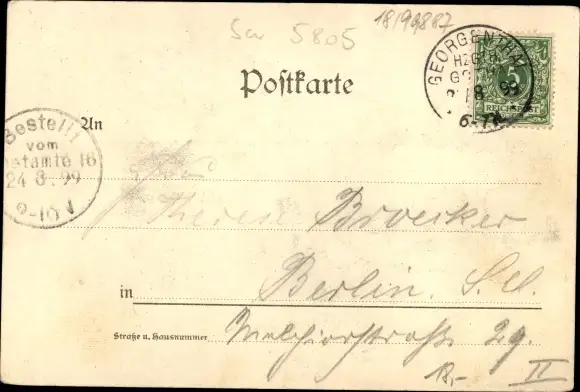 Sar 5805
18/99887
Postkarte
GEORGENTHAL
HZGTH.
GOTHA
8 99
6-7N.
5
REICHSPOST
Bestellt
vom
Postamte 16
24 8. 99
9-10 V
An
Broecker
in Berlin. S.O.
Straße u. Hausnummer Melchiorstraße 29.
12,- II